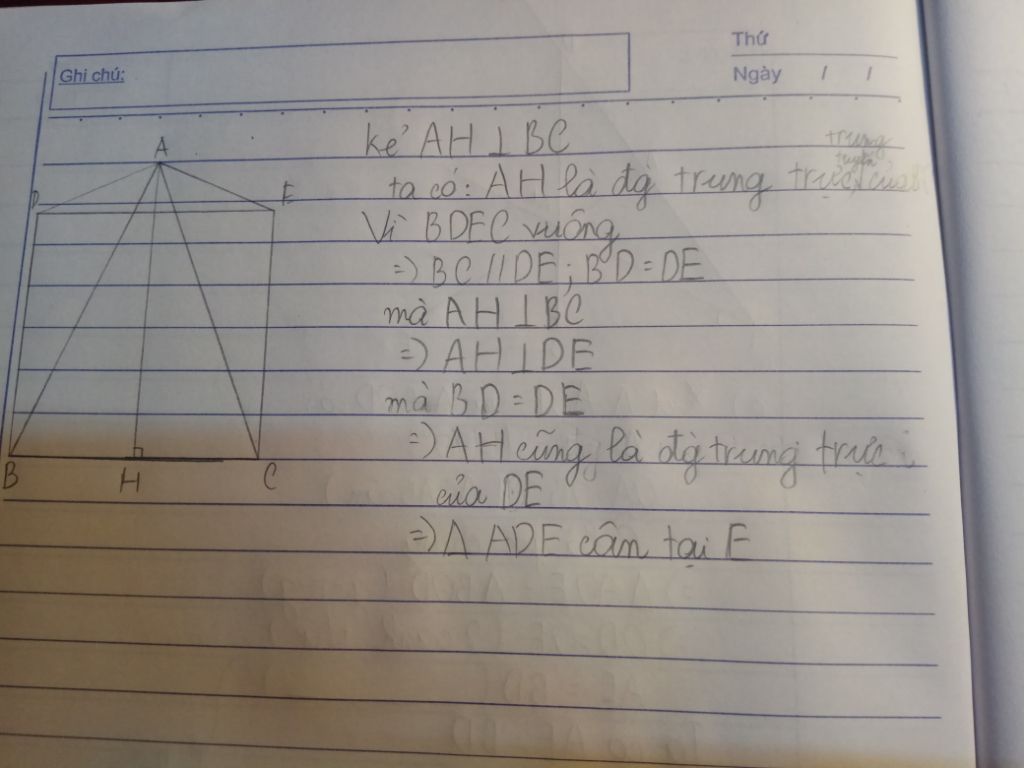 Thứ
Ghi chú:
Ngày / /
A
D
E
B
H
C
kẻ AH ⊥ BC
trung
tuyến
ta có: AH là đg trung trực của
Vì BDEC vuông
=) BC // DE ; BD = DE
mà AH ⊥ BC
=) AH ⊥ DE
mà BD = DE
=) AH cũng là đg trung trực
của DE
=) Δ ADE cân tại E